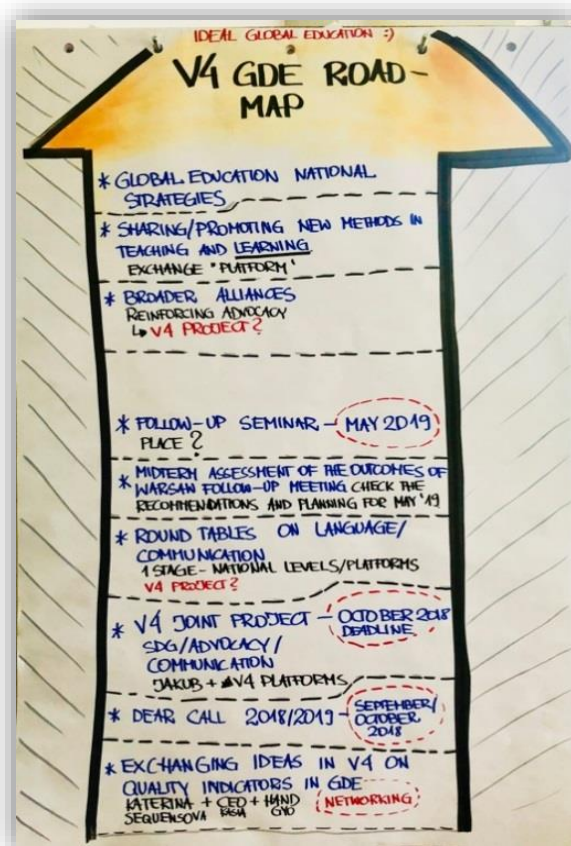 IDEAL GLOBAL EDUCATION :)
V4 GDE ROAD-
MAP
* GLOBAL EDUCATION NATIONAL
STRATEGIES
* SHARING/PROMOTING NEW METHODS IN
TEACHING AND LEARNING
EXCHANGE "PLATFORM"
* BROADER ALLIANCES
REINFORCING ADVOCACY
↳ V4 PROJECT?
* FOLLOW-UP SEMINAR – MAY 2019
PLACE?
* MIDTERM ASSESSMENT OF THE OUTCOMES OF
WARSAW FOLLOW-UP MEETING CHECK THE
RECOMMENDATIONS AND PLANNING FOR MAY '19
* ROUND TABLES ON LANGUAGE/
COMMUNICATION
1 STAGE – NATIONAL LEVELS/PLATFORMS
V4 PROJECT?
* V4 JOINT PROJECT – OCTOBER 2018
DEADLINE
SDG/ADVOCACY/
COMMUNICATION
JAKUB + V4 PLATFORMS
* DEAR CALL 2018/2019 – SEPTEMBER/
OCTOBER
2018
* EXCHANGING IDEAS IN V4 ON
QUALITY INDICATORS IN GDE
KATERINA + CEO + HAND
SEQUENSOVA KASIA GYO
NETWORKING